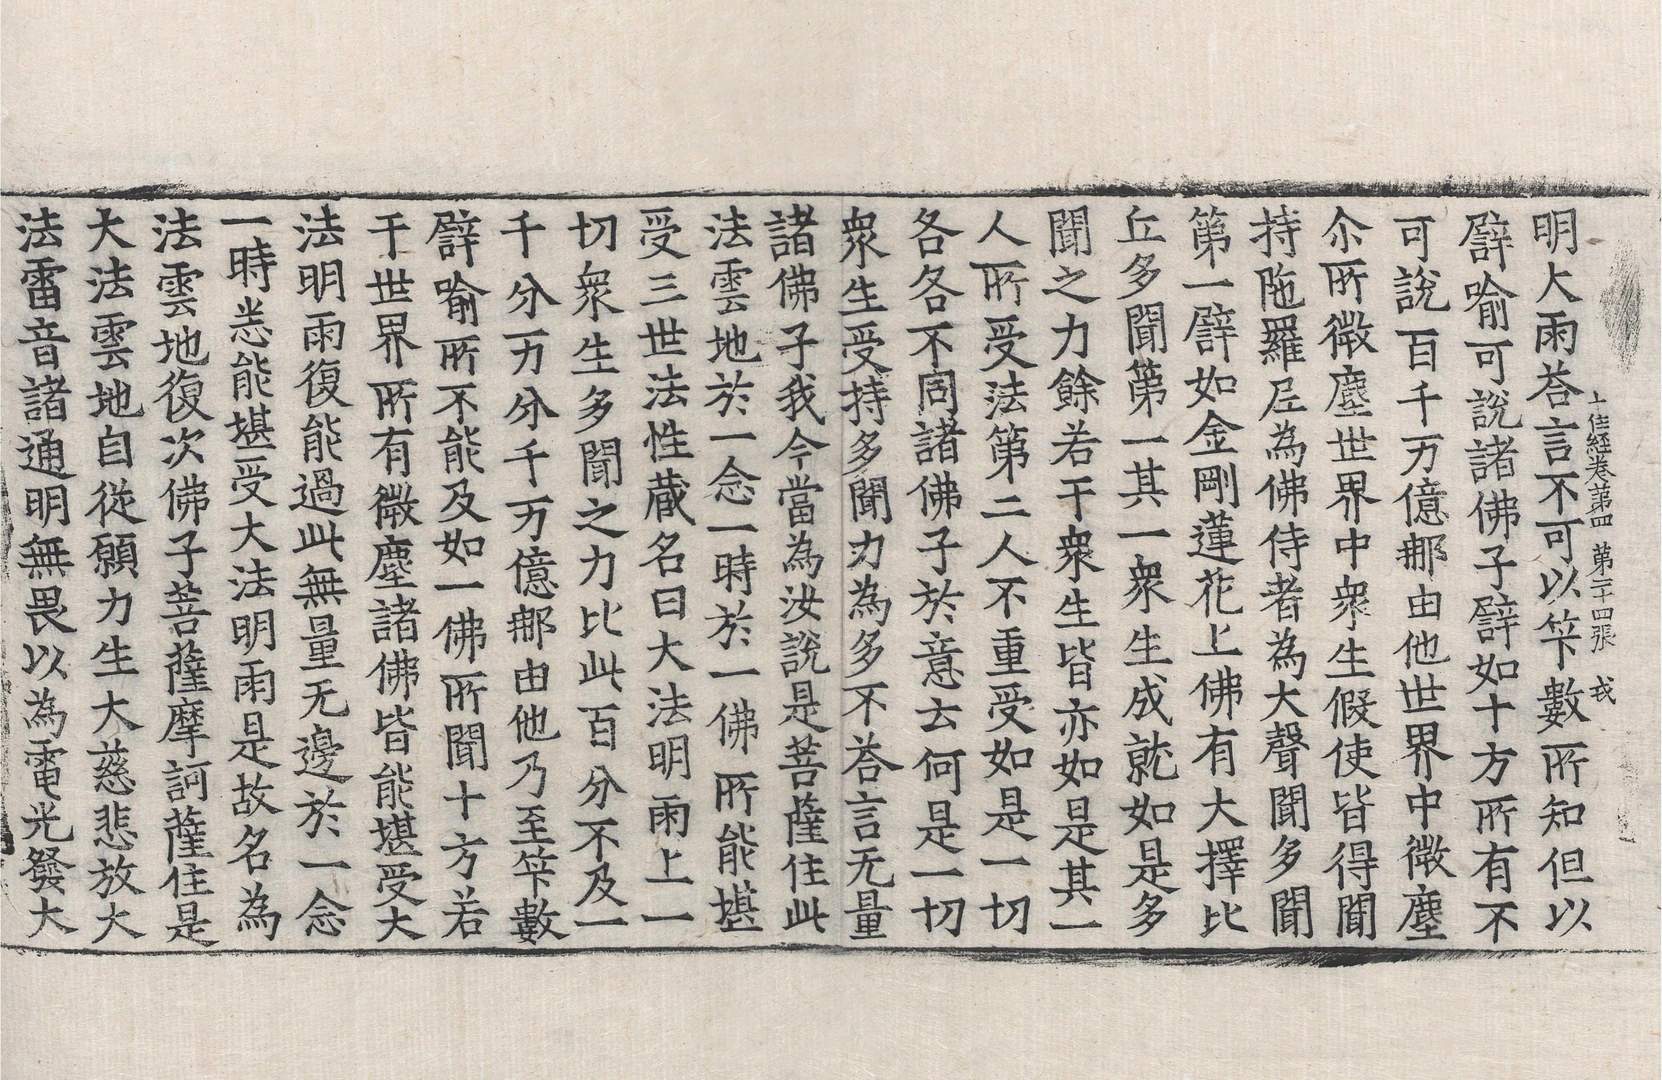 十住經卷第四 第二十四張 㦲
明大雨荅言不可以筭數所知但以
譬喻可說諸佛子譬如十方所有不
可說百千万億那由他世界中微塵
尒所微塵世界中衆生假使皆得聞
持陁羅尼為佛侍者為大聲聞多聞
第一譬如金剛蓮花上佛有大擇比
丘多聞第一其一衆生成就如是多
聞之力餘若干衆生皆亦如是其一
人所受法第二人不重受如是一切
各各不同諸佛子於意云何是一切
衆生受持多聞力為多不荅言无量
諸佛子我今當為汝說是菩薩住此
法雲地於一念一時於一佛所能堪
受三世法性蔵名曰大法明雨上一
切衆生多聞之力比此百分不及一
千分万分千万億那由他乃至筭數
譬喻所不能及如一佛所聞十方若
干世界所有微塵諸佛皆能堪受大
法明雨復能過此無量无邊於一念
一時悉能堪受大法明雨是故名為
法雲地復次佛子菩薩摩訶薩住是
大法雲地自從願力生大慈悲放大
法雷音諸通明無畏以為電光發大